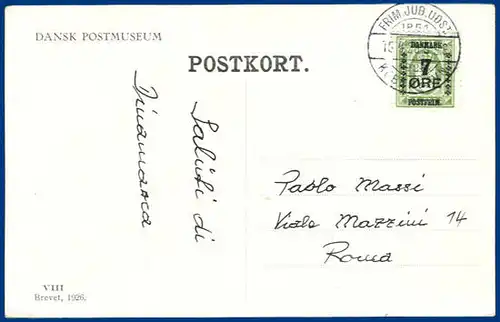 DANSK POSTMUSEUM
POSTKORT.
FRIM. JUB. UDST.
1851
DANMARK
7
ØRE
POSTFRIM.
Saluti di
Danimarca
Paolo Massi
Viale Mazzini 14
Roma
VIII
Brevet, 1926.